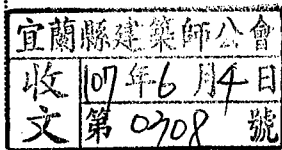 宜蘭縣建築師公會
收文
107年6月4日
第0708號